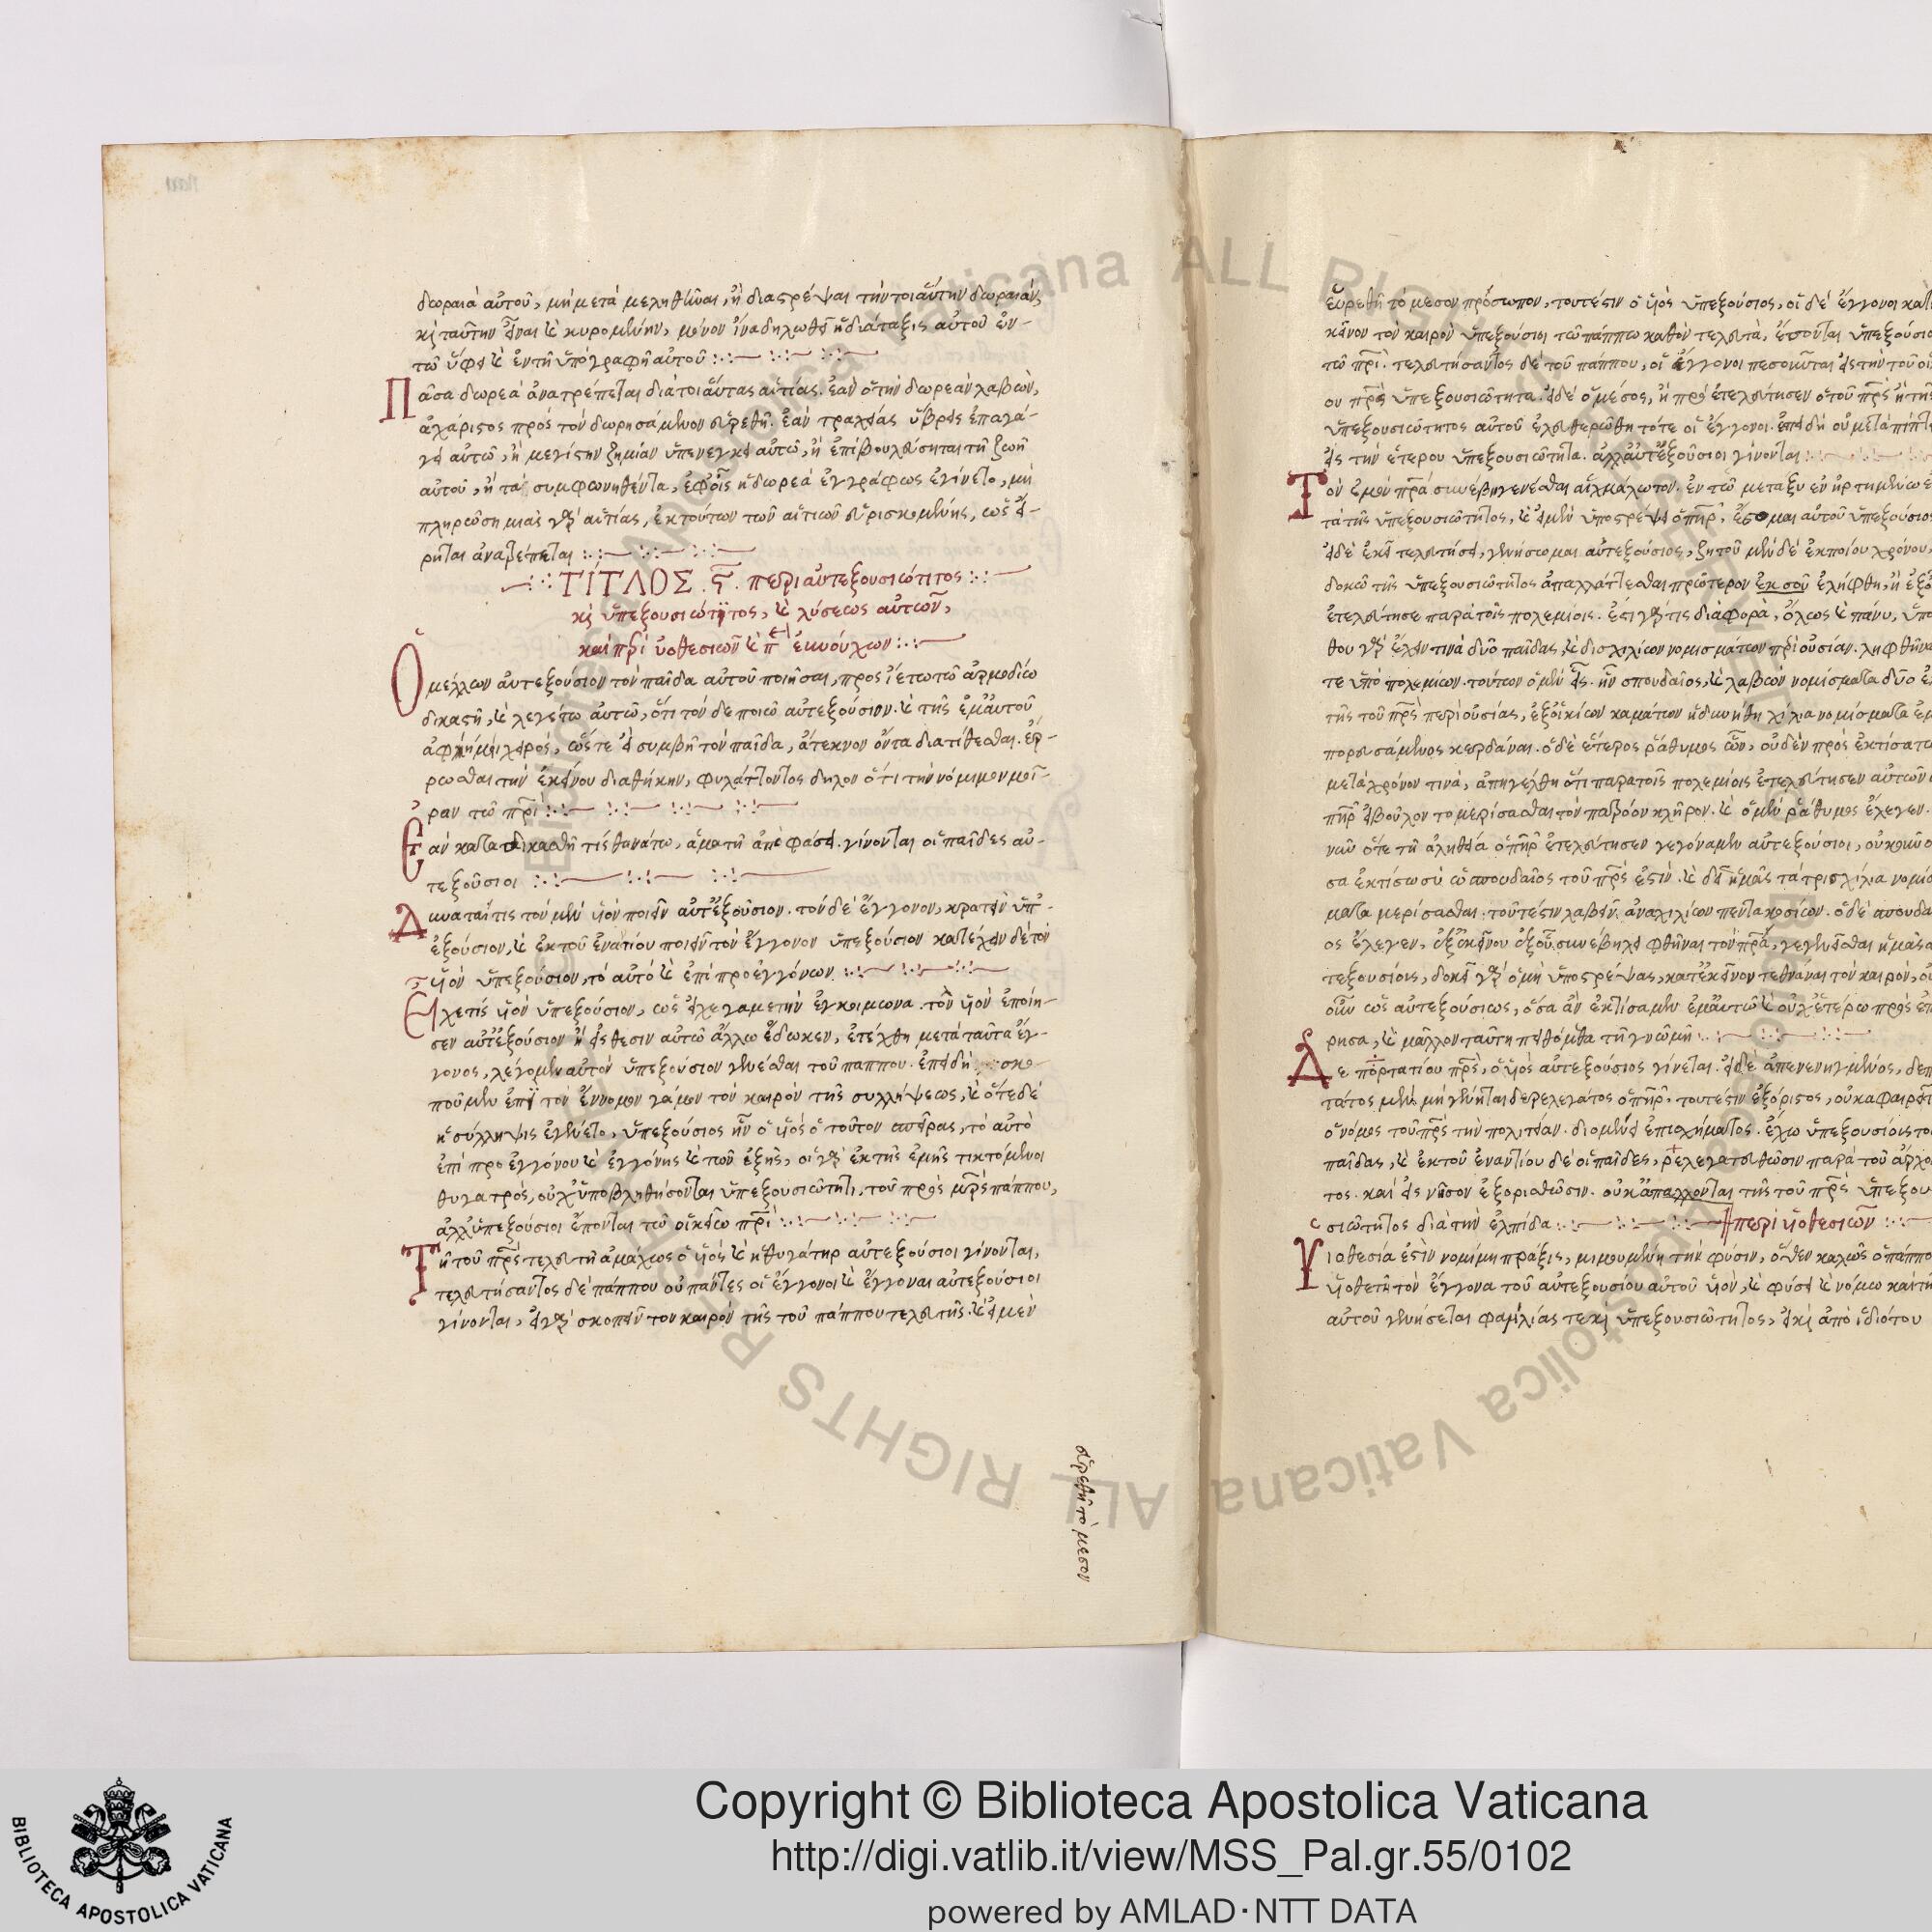 δωραιὰ αὐτοῦ, μὴ μετὰ μεληθῆναι, ἢ διαστρέψαι τὴν τοιαύτην δωραιάν,
κὶ ταύτην εἶναι κὲ κυρομένην, μόνον ἵνα δηλωθεῖ ἡ διάταξις αὐτοῦ ἐν-
τῶ ὕφει κὲ ἐν τῆ ὑπογραφῆ αὐτοῦ
Πᾶσα δωρεὰ ἀνατρέπεται διὰ τοιαύτας αἰτίας. ἐὰν ὁ τὴν δωρεὰν λαβὼν,
ἀχάριστος πρὸς τὸν δωρησάμενον εὑρεθῆ. ἐὰν τραχείας ὕβρεις ἐπαγά-
γει αὐτῶ, ἢ μεγίστην ζημίαν ὑπενεγκεῖ αὐτῶ, ἢ ἐπιβουλεύσηται τῆ ζωῆ
αὐτοῦ, ἢ τὰ συμφωνηθέντα, ἐφ οἷς ἡ δωρεὰ ἐγγράφως ἐγίνετο, μὴ
πληρώση μιᾶς γὰρ αἰτίας, ἐκ τούτων τῶν αἰτιῶν εὑρισκομένης, ὡς εἴ-
ρηται ἀνατρέπεται
ΤΙΤΛΟΣ ϛ. περι αὐτεξουσιώτιτος
κὶ ὑπεξουσιώτητος, κὲ λύσεως αὐτῶν,
καὶ πρὶ ὑοθεσιῶν κὲ π εὐνούχων
Ὁ μέλλων αὐτεξούσιον τὸν παῖδα αὐτοῦ ποιῆσαι, προσίετω τῶ ἁρμοδίω
δικαστῆ, κὲ λεγέτω αὐτῶ, ὅτι τὸν δε ποιῶ αὐτεξούσιον. κὲ τῆς ἐμαυτοῦ
ἀφίημι χειρὸς, ὥστε εἰ συμβῆ τὸν παῖδα, ἄτεκνον ὄντα διατίθεσθαι. ἔρ-
ρωσθαι τὴν ἐκείνου διαθήκην, φυλάττοντος δηλον ὅτι τὴν νόμιμον μοῖ-
ραν τῶ πρὶ
Ἐὰν καταδικασθῆ τίς θανάτω, ἅμα τῆ ἀποφάσει. γίνονται οἱ παῖδες αὐ-
τεξούσιοι
Δυναταί τις τὸν μὲν υἱὸν ποιεῖν αὐτεξούσιον. τὸν δὲ ἔγγονον, κρατεῖν ὑπ-
εξούσιον, κὲ ἐκ τοῦ ἐναντίου ποιεῖν τὸν ἔγγονον ὑπεξούσιον κατέχειν δὲ τὸν
υἱὸν ὑπεξούσιον, τὸ αὐτὸ κὲ ἐπὶ προεγγόνων
Εἶχε τίς υἱὸν ὑπεξούσιον, ὡς εἶχε γαμετὴν ἐγκοιμωνα. τὸν υἱὸν ἐποίη-
σεν αὐτεξούσιον ἢ εἰς θεσιν αὐτῶ ἄλλω ἔδωκεν, ἐτέχθη μετὰ ταῦτα ἔγ-
γονος, λέγομεν αὐτὸν ὑπεξούσιον γενέσθαι τοῦ παππου. ἐπειδὴ σκο-
ποῦμεν ἐπὶ τὸν ἔννομον γάμον τὸν καιρὸν τῆς συλλήψεως, κὲ ὅτε δὲ
ἡ σύλληψις ἐγένετο, ὑπεξούσιος ἦν ὁ υἱὸς ὁ τοῦτον σπείρας, τὸ αὐτὸ
ἐπὶ προεγγόνου κὲ ἐγγόνης κὲ τῶν ἑξῆς, οἱ γὰρ ἐκ τῆς ἐμῆς τικτόμενοι
θυγατρὸς, οὐχ ὑποβληθήσονται ὑπεξουσιώτητι, τοῦ πρὸς μρς πάππου,
ἀλλ ὑπεξούσιοι ἕπονται τῶ οἰκείω πρὶ
Τῆ τοῦ πρς τελευτῆ ἀμάχως ὁ υἱὸς κὲ ἡ θυγάτηρ αὐτεξούσιοι γίνονται,
τελευτήσαντος δὲ πάππου οὐ πάντες οἱ ἔγγονοι κὲ ἔγγοναι αὐτεξούσιοι
γίνονται, εἰ γὰρ σκοπεῖν τον καιρὸν τῆς τοῦ πάππου τελευτῆς. κὲ εἰ μεν
εὑρεθῆ τὸ μεσον
εὑρεθῆ τὸ μεσον πρόσωπον, τουτέστιν ὁ υἱὸς ὑπεξούσιος, οἱ δὲ ἔγγονοι κατ
κεῖνον τὸν καιρὸν ὑπεξούσιοι τῶ πάππω καθ ὃν τελευτὰ, ἔσονται ὑπεξούσιο
τῶ πρὶ. τελευτήσαντος δὲ τοῦ πάππου, οἱ ἔγγονοι πεσοῦνται εἰς τὴν τοῦ οἰ
ου πρς ὑπεξουσιώτητα. εἰ δὲ ὁ μέσος, ἢ πρὸ ἐτελεύτησεν ὁ τοῦ πρς ἢ τῆς
ὑπεξουσιώτητος αὐτοῦ ἐλευθερώθη τότε οἱ ἔγγονοι. ἐπειδὴ οὐ μεταπίπτ
εἰς τὴν ἑτερου ὑπεξουσιώτητα. ἀλλ αὐτεξούσιοι γίνονται
Τὸν ἐμὸν πρα συνέβη γενέσθαι αἰχμάλωτον. ἐν τῶ μεταξὺ ἐν ἠρτημένω ε
τὰ τῆς ὑπεξουσιώτητος, κὲ εἰ μὲν ὑποστρέψει ὁ πηρ, ἔσομαι αὐτοῦ ὑπεξούσιος
εἰ δὲ ἐκεῖ τελευτήσει, γενήσωμαι αὐτεξούσιος, ζητοῦμεν δὲ ἐκ ποίου χρόνου,
δοκῶ τῆς ὑπεξουσιώτητος ἀπαλλάττεσθαι πρώτερον ἐκ σοῦ ἐλήφθη, ἢ ἐξὁ
ἐτελεύτησε παρὰ τοῖς πολεμίοις. ἔστι γὰρ τις διάφορα, ὅλως κὲ πάνυ, ὑπο
θου γὰρ ἔχειν τινὰ δύο παῖδας, κὲ δισχιλίων νομισμάτων πρὶουσίαν. ληφθῆναι
τε ὑπὸ πολεμιων. τούτων ὁ μὲν εἷς. ἦν σπουδαῖος, κὲ λαβὼν νομίσματα δύο ἐ
τῆς τοῦ πρς περὶουσίας, ἐξ οἰκίων καμάτων ἠδυνήθη χίλια νομίσματα ἐμ
πορευσάμενος κερδάναι. ὁ δὲ ἕτερος ῥάθυμος ὢν, οὐδὲν προσεκτίσατο
μετὰ χρόνον τινὰ, ἀπηγέλθη ὅτι παρα τοῖς πολεμίοις ἐτελεύτησεν αὐτῶν ὁ
πηρ ἐβούλοντο μερίσασθαι τὸν πατρῶον κλῆρον. κὲ ὁ μὲν ῥάθυμος ἔλεγεν.
νῦν ὅτε τῆ ἀληθεία ὁ πηρ ἐτελεύτησεν γεγόναμεν αὐτεξούσιοι, οὐκοῦν ὅ
σα ἐκτίσω σὺ ὡ σπουδαῖος τοῦ πρς ἐστίν. κὲ δεῖ ἡμᾶς τὰ τρισχίλια νομίσ
ματα μερίσασθαι. τουτέστιν λαβεῖν ἀνα χιλίων πεντακοσίων. ὁ δὲ σπουδαῖ
ος ἔλεγεν, ἐξ ἐκείνου ἐξ οὗ συνέβη λειφθῆναι τὸν πρα, γεγενεῖσθαι ἡμᾶς αὐ
τεξουσίοις, δοκεῖ γὰρ ὁ μὴ ὑποστρέψας, κατ ἐκεῖνον τεθνάναι τὸν καιρὸν, ὁ
οὖν ὡς αὐτεξούσιως, ὅσα ἂν ἐκτίσαμεν ἐμαυτῶ κὲ οὐχ ἑτέρω προσεπ
ρησα, κὲ μᾶλλον ταύτη πειθόμεθα τῆ γνώμη
Δε πορτατίου πρς, ὁ υἱὸς αὐτεξούσιος γίνεται. εἰ δὲ ἀπενενημένος, δεπ
τάτος μὲν μὴ γένηται δε ρελεγατος ὁ πηρ. τουτέστιν ἐξόριστος, οὐκ αφαιρεῖτ
ὁ νόμος τοῦ πρς τὴν πολιτείαν. διομένει ἐπισχήματος. ἔχω ὑπεξουσίοις το
παῖδας, κὲ ἐκ τοῦ ἐναντίου δὲ οἱ παῖδες, ρελεγατευθῶσιν παρὰ τοῦ ἄρχο
τος. καὶ εἰς νῆσον ἐξοριασθῶσιν. οὐκ ἀπαλλονται τῆς τοῦ πρς ὑπεξου-
σιώτητος διὰ τὴν ἐλπίδα περὶ υἱοθεσιῶν
Υἱοθεσία ἐστὶν νομίμη πρᾶξις, μιμουμένη τὴν φύσιν, ὅθεν καλῶς ὁ πάππο
υἱοθετῆ τὸν ἔγγονα τοῦ αὐτεξουσίου αὐτοῦ υἱὸν, κὲ φύσει κὲ νόμω καὶ τῆ
αὐτοῦ γενήσεται φαμιλίας τε κὶ ὑπεξουσιώτητος, εἰ κὶ ἀπὸ ἰδιότου
ALL RIGHTS RESERVED
Biblioteca Apostolica Vaticana
BIBLIOTECA APOSTOLICA VATICANA
Copyright © Biblioteca Apostolica Vaticana
http://digi.vatlib.it/view/MSS_Pal.gr.55/0102
powered by AMLAD·NTT DATA